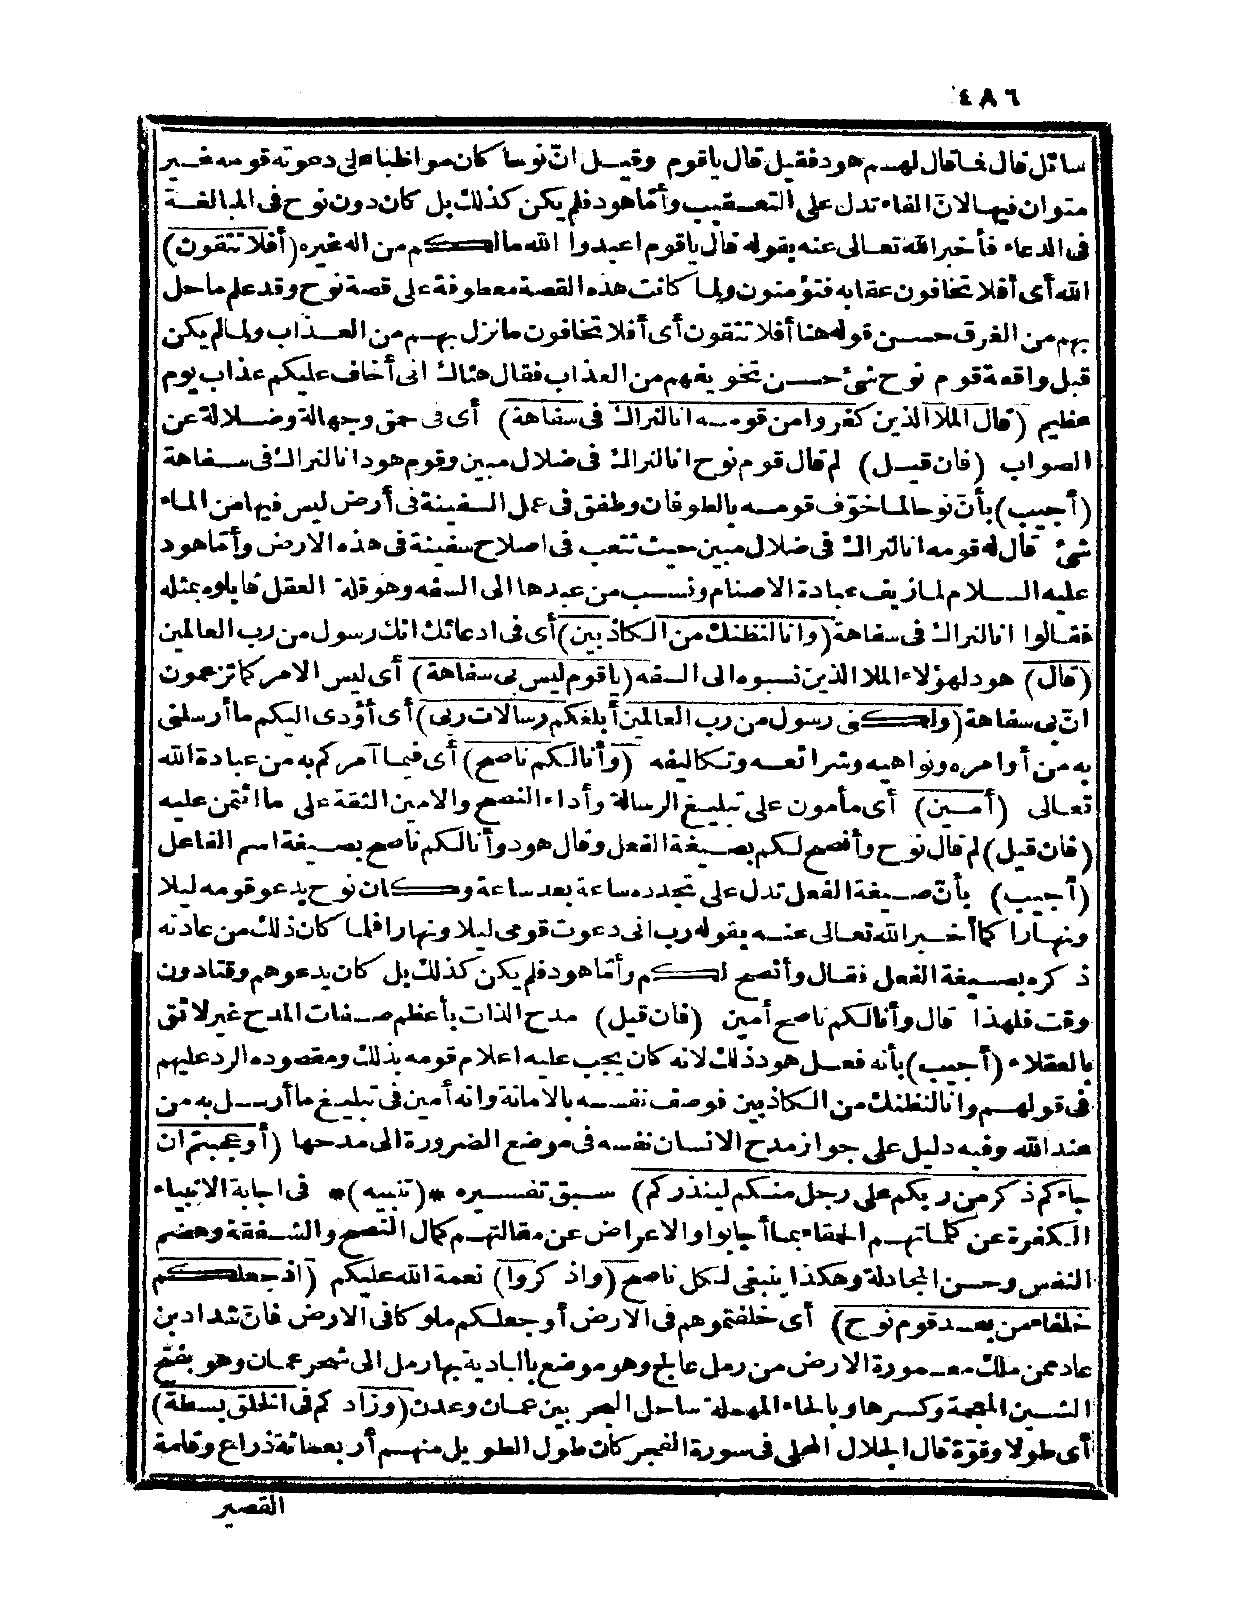 ٤٨٦
سائل قال فما قال لهم هود فقيل قال ياقوم وقيل ان نوحا كان مواظبا على دعوته قومه غير
متوان فيها لان الفاء تدل على التعقيب وأمّا هود فلم يكن كذلك بل كان دون نوح فى المبالغة
فى الدعاء فأخبر الله تعالى عنه بقوله قال ياقوم اعبدوا الله مالكم من اله غيره (أفلا تتقون)
الله أى أفلا تخافون عقابه فتؤمنون ولما كانت هذه القصة معطوفة على قصة نوح وقد علم ماحل
بهم من الغرق حسن قوله هنا أفلا تتقون أى أفلا تخافون مانزل بهم من العذاب ولما لم يكن
قبل واقعة قوم نوح شئ حسن تخويفهم من العذاب فقال هناك انى أخاف عليكم عذاب يوم
عظيم (قال الملا الذين كفروا من قومه انا لنراك فى سفاهة) أى فى حمق وجهالة وضلالة عن
الصواب (فان قيل) لم قال قوم نوح انا لنراك فى ضلال مبين وقوم هود انا لنراك فى سفاهة
(أجيب) بأنّ نوحا لما خوّف قومه بالطوفان وطفق فى عمل السفينة فى أرض ليس فيها من الماء
شئ قال له قومه انا لنراك فى ضلال مبين حيث تتعب فى اصلاح سفينة فى هذه الارض وأمّا هود
عليه السلام لما زيف عبادة الاصنام ونسب من عبدها الى السفه وهو قلة العقل قابلوه بمثله
فقالوا انا لنراك فى سفاهة (وانا لنظنك من الكاذبين) أى فى ادعائك انك رسول من رب العالمين
(قال) هود لهؤلاء الملا الذين نسبوه الى السفه (ياقوم ليس بى سفاهة) أى ليس الامر كما تزعمون
انّ بى سفاهة (ولكنى رسول من رب العالمين أبلغكم رسالات ربى) أى أؤدى اليكم ما أرسلنى
به من أوامره ونواهيه وشرائعه وتكاليفه (وأنا لكم ناصح) أى فيما آمركم به من عبادة الله
تعالى (أمين) أى مأمون على تبليغ الرسالة وأداء النصح والامين الثقة على ما ائتمن عليه
(فان قيل) لم قال نوح وأنصح لكم بصيغة الفعل وقال هود وأنا لكم ناصح بصيغة اسم الفاعل
(أجيب) بأنّ صيغة الفعل تدل على تجدده ساعة بعد ساعة وكان نوح يدعو قومه ليلا
ونهارا كما أخبر الله تعالى عنه بقوله رب انى دعوت قومى ليلا ونهارا فلما كان ذلك من عادته
ذكره بصيغة الفعل فقال وأنصح لكم وأمّا هود فلم يكن كذلك بل كان يدعوهم وقتا دون
وقت فلهذا قال وأنا لكم ناصح أمين (فان قيل) مدح الذات بأعظم صفات المدح غير لائق
بالعقلاء (أجيب) بأنه فعل هود ذلك لانه كان يجب عليه اعلام قومه بذلك ومقصوده الرد عليهم
فى قولهم وانا لنظنك من الكاذبين فوصف نفسه بالامانة وانه أمين فى تبليغ ما أرسل به من
عند الله وفيه دليل على جواز مدح الانسان نفسه فى موضع الضرورة الى مدحها (أوعجبتم ان
جاءكم ذكر من ربكم على رجل منكم لينذركم) سبق تفسيره *(تنبيه)* فى اجابة الانبياء
الكفرة عن كلماتهم الحمقاء بما أجابوا والاعراض عن مقالتهم كمال النصح والشفقة وهضم
النفس وحسن المجادلة وهكذا ينبغى لكل ناصح (واذكروا) نعمة الله عليكم (اذ جعلكم
خلفاء من بعد قوم نوح) أى خلفتموهم فى الارض أو جعلكم ملوكا فى الارض فان شداد بن
عاد ممن ملك معمورة الارض من رمل عالج وهو موضع بالبادية بها رمل الى شحر عمان وهو بفتح
الشين المعجمة وكسرها وبالحاء المهملة ساحل البحر بين عمان وعدن (وزادكم فى الخلق بسطة)
أى طولا وقوّة قال الجلال المحلى فى سورة الفجر كان طول الطويل منهم أربعمائة ذراع وقامة
القصير